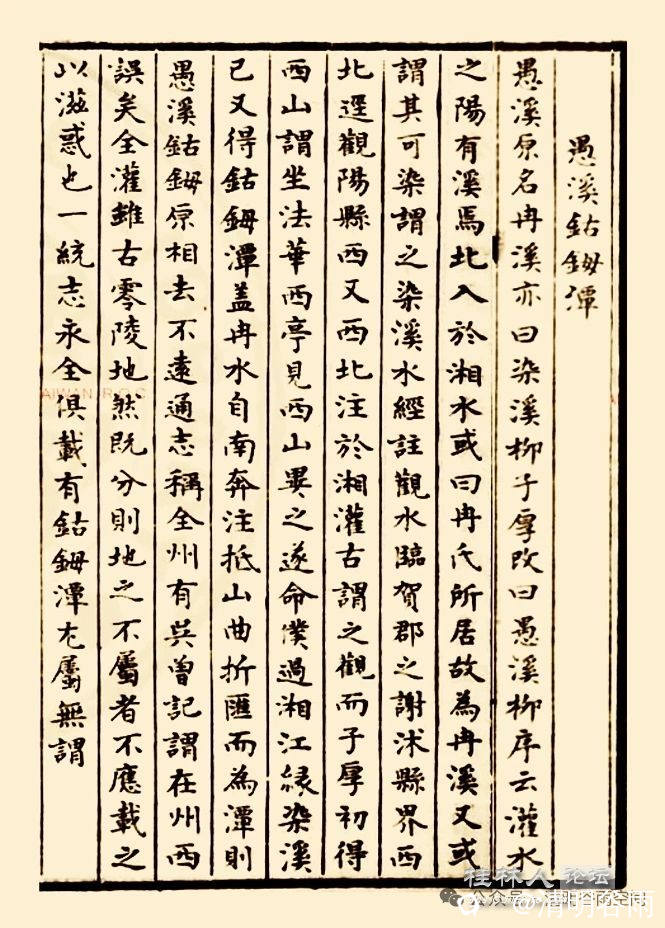 愚溪鈷鉧潭
愚溪原名冉溪亦曰染溪柳子厚改曰愚溪柳序云灌水
之陽有溪焉北入於湘水或曰冉氏所居故為冉溪又或
謂其可染謂之染溪水經註觀水臨賀郡之謝沭縣界西
北逕觀陽縣西又西北注於湘灌古謂之觀而子厚初得
西山謂坐法華西亭見西山異之遂命僕過湘江緣染溪
已又得鈷鉧潭蓋冉水自南奔注抵山曲折匯而為潭則
愚溪鈷鉧原相去不遠通志稱全州有吳曾記謂在州西
誤矣全灌雖古零陵地然既分則地之不屬者不應載之
以滋惑也一統志永全俱載有鈷鉧潭尤屬無謂
AIWAN, R.O.C
桂林人论坛
公众号
@清明谷雨